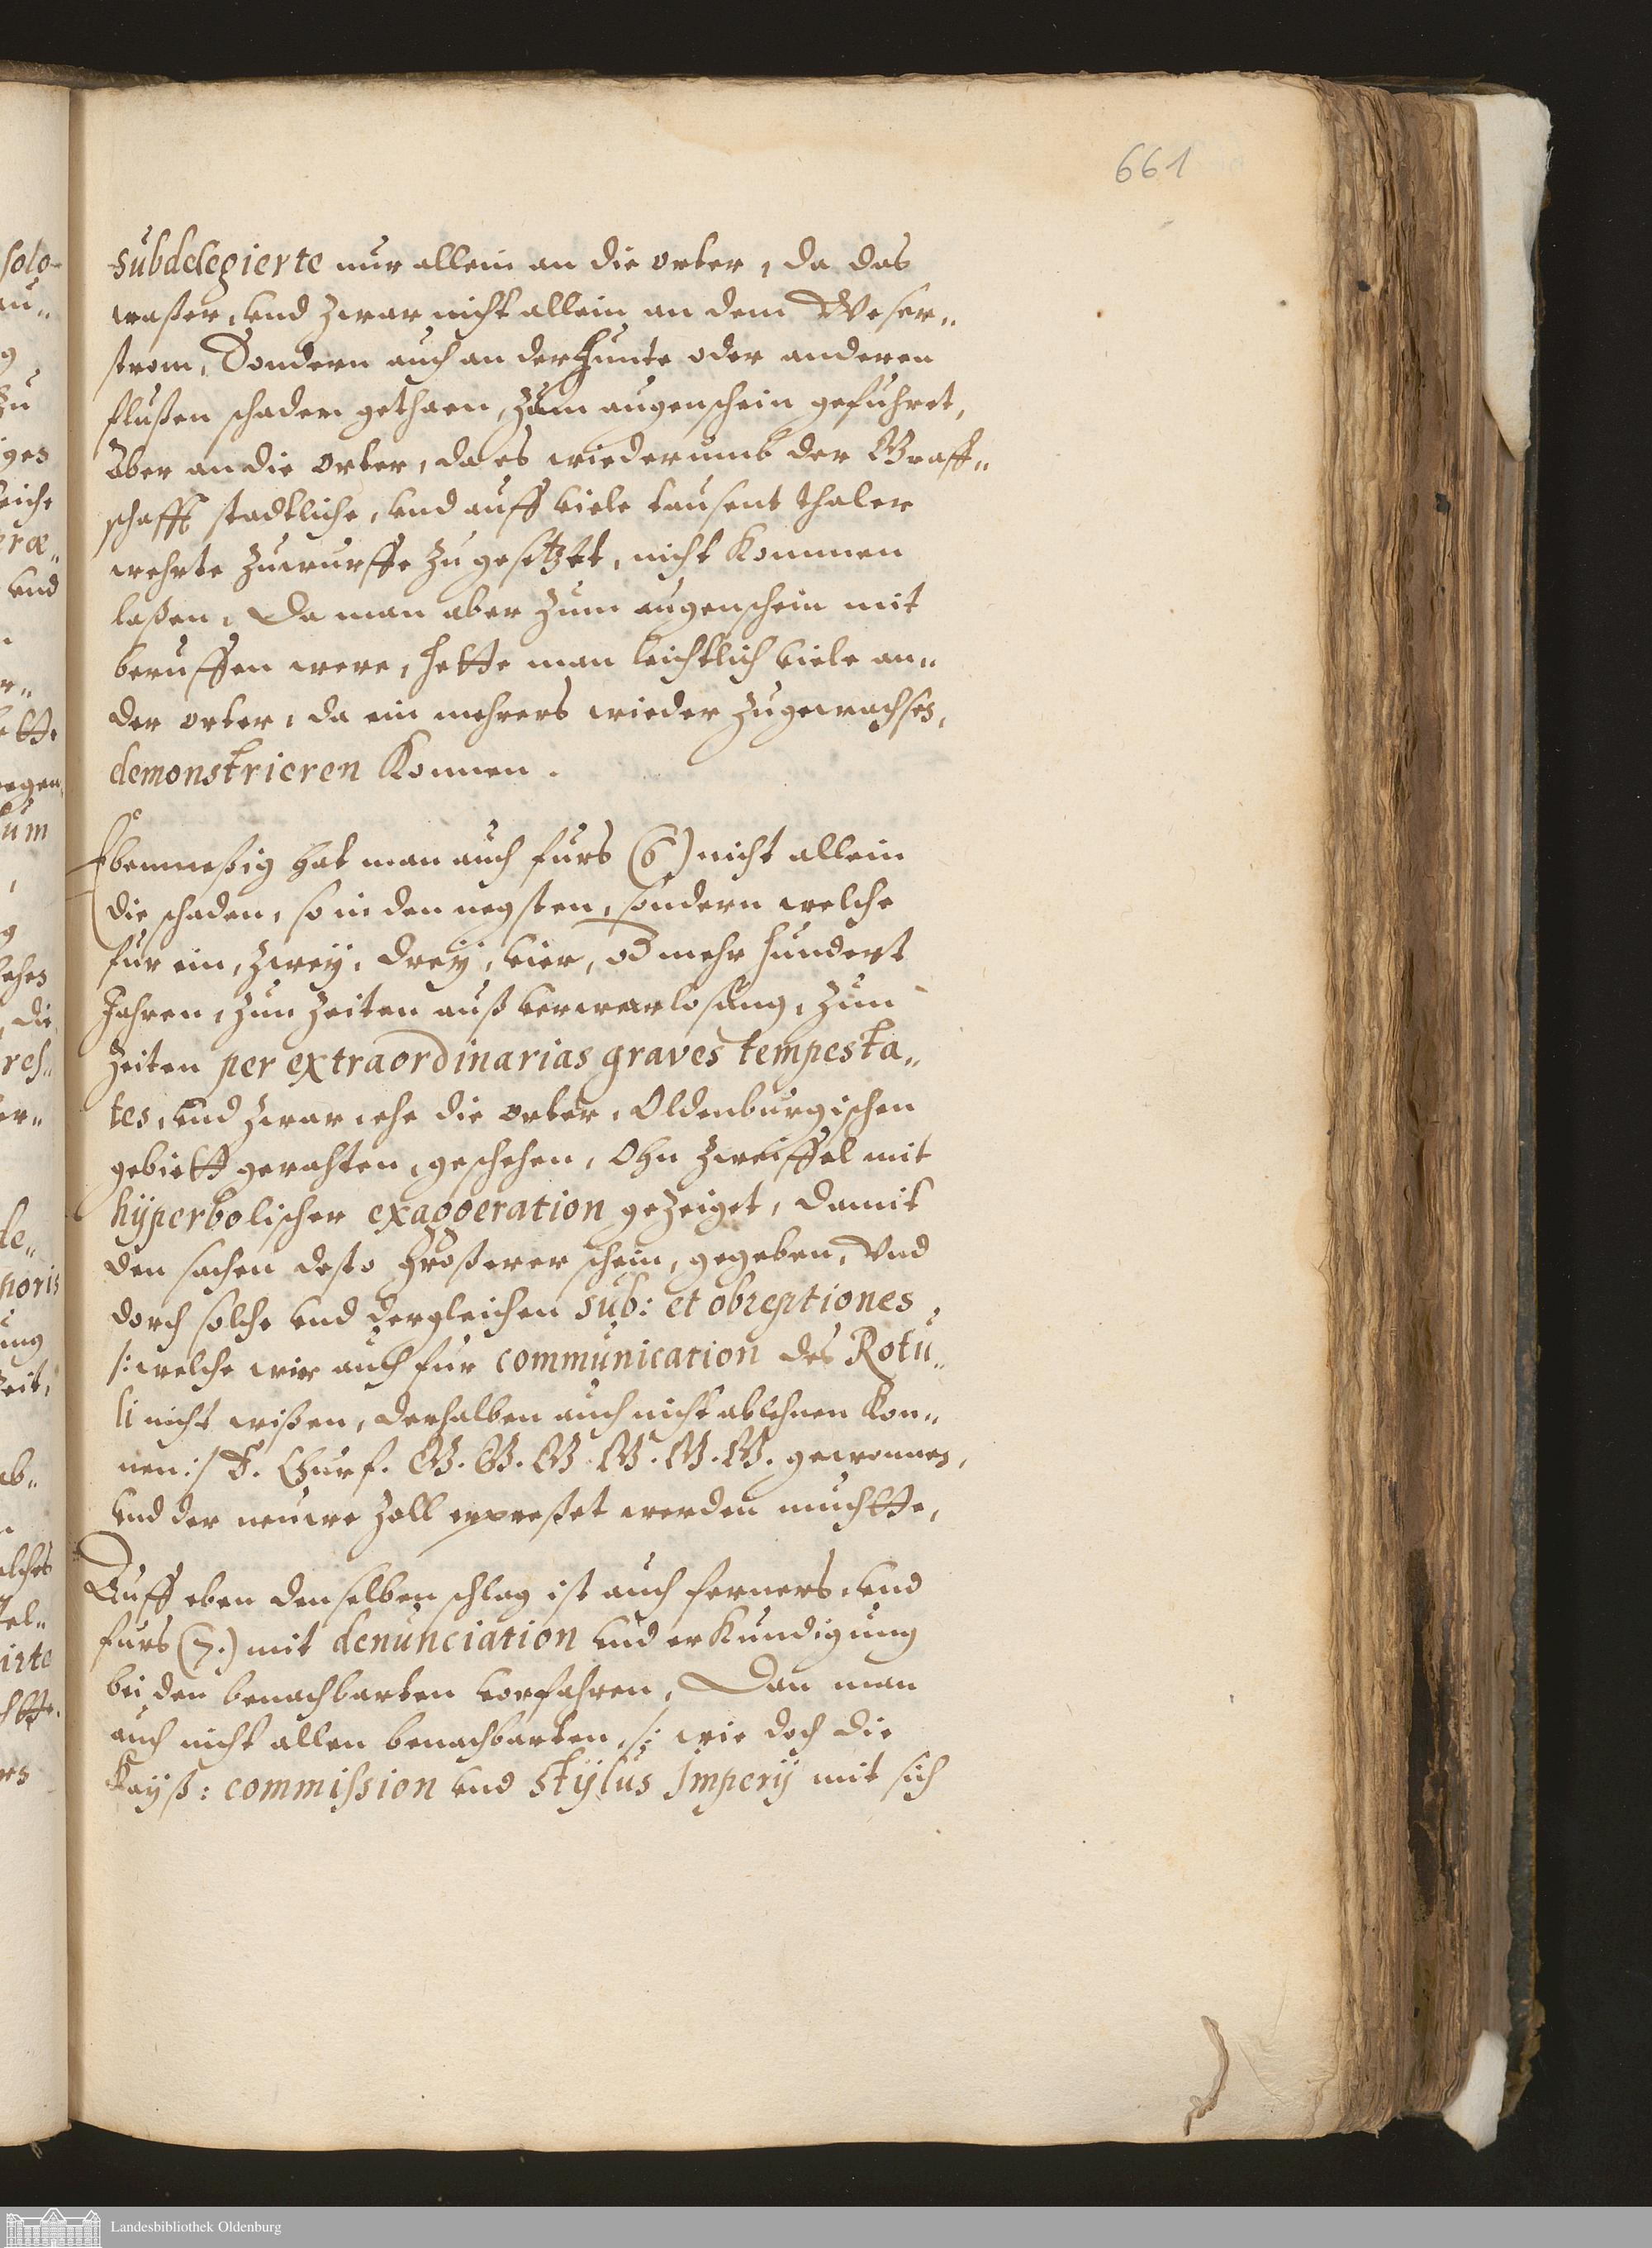 661
subdelegierte nur allein an die orter, da das
waßer, vnd zwar nicht allein an dem Weser„
strom, Sondern auch an der Hunte oder anderen
flußen schaden gethaen, zum augenschein gefuhret,
Aber an die orter, da es wiederumb der Graff„
schafft stadtliche, vnd auff viele tausent thaler
wehrte zuwurffe zu gesetzet, nicht kommen
laßen, Da man aber zum augenschein mit
beruffen were, hette man leichtlich viele an„
der orter, da ein mehrers wieder zugewachsen,
demonstrieren konnen.
Ebenmeßig hat man auch furs (6) nicht allein
die schaden, so in den negsten, sondern welche
fur ein, zwey, drey, vier, od mehr hundert
Jahren, zun zeiten auß verwarlosung, zun
zeiten per extraordinarias graves tempesta„
tes, vnd zwar ehe die orter, Oldenburgischen
gebiett gerahten, geschehen, Ohn zweiffel mit
hyperbolischer exaggeration gezeiget, damit
den sachen desto großerer schein, gegeben, Vnd
dorch solche vnd dergleichen sub: et obreptiones,
/: welche wir auch fur communication des Rotu„
li nicht wißen, derhalben auch nicht ablehnen kon„
nen :/ E. Churf. G. G. G. G. G. G. gewonnen,
vnd der neuwe zoll expreßet werden muchtte,
Auff eben denselben schlag ist auch ferners, vnd
furs (7.) mit denunciation vnd erkundigung
bei den benachbarten vorfahren, Dan man
auch nicht allen benachbarten, /: wie doch die
Kayß: commission vnd stylus Imperij mit sich
solo-
zu
vnd
um
die
Landesbibliothek Oldenburg